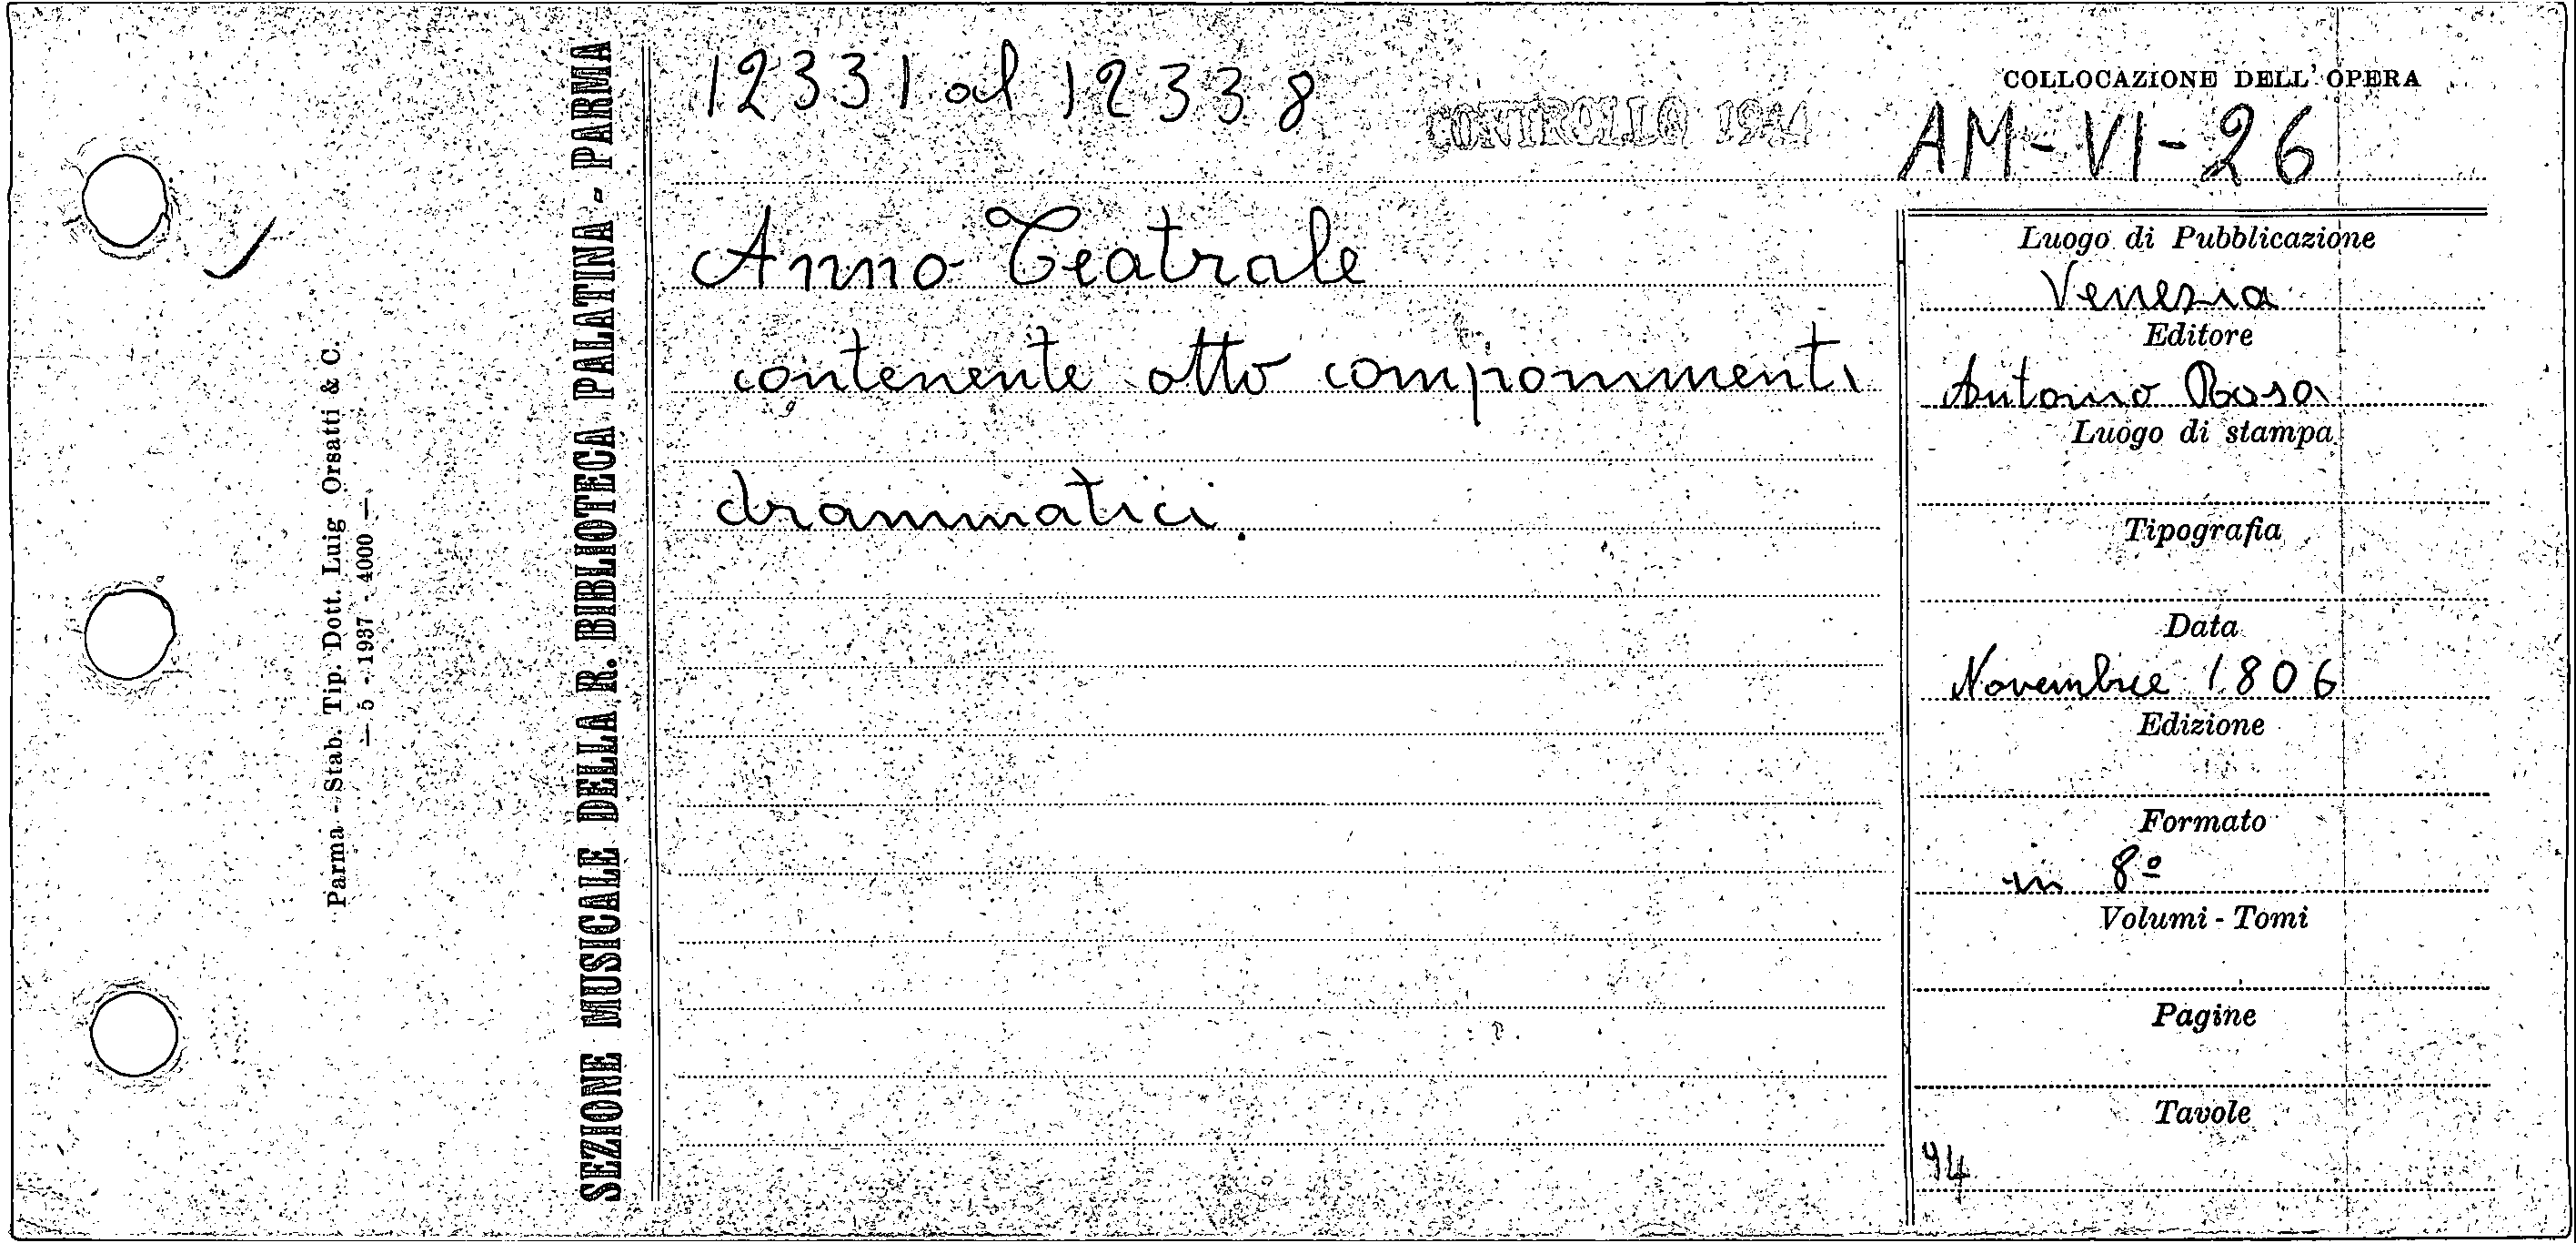 12331 al 12338
CONTROLLO 19
COLLOCAZIONE DELL' OPERA
AM-VI-26
Anno Teatrale
contenente otto componimenti
drammatici.
Luogo di Pubblicazione
Venezia
Editore
Antonio Rosa
Luogo di stampa
Tipografia
Data
Novembre 1806
Edizione
Formato
in 8º
Volumi - Tomi
Pagine
Tavole
94
SEZIONE MUSICALE DELLA R. BIBLIOTECA PALATINA - PARMA
Parma - Stab. Tip. Dott. Luig Orsatti & C.
— 5 - 1937 - 4000 —